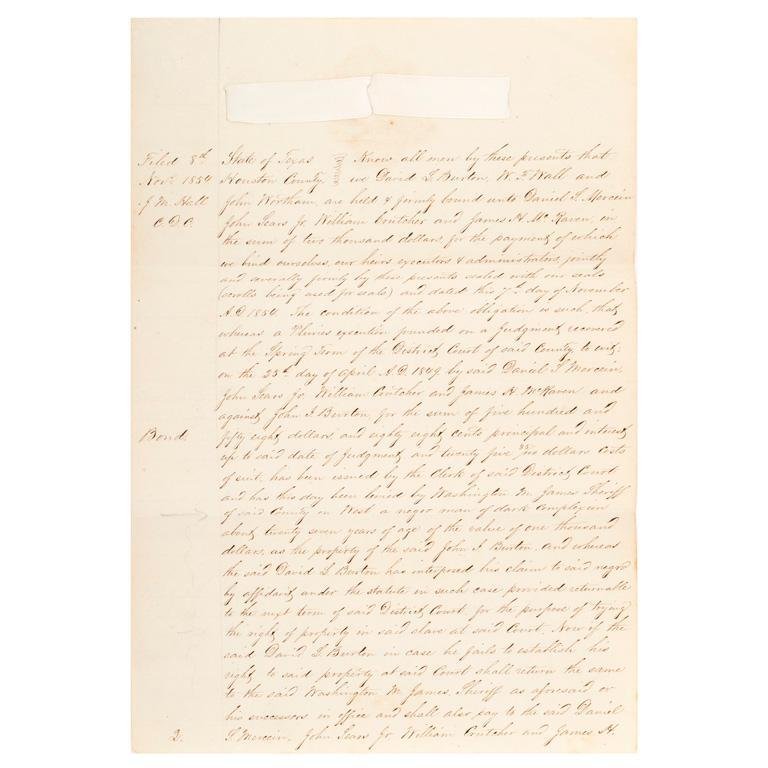 Filed 8th
Nov. 1854
J. M. Hall
C. D. C.
State of Texas
Houston County
Know all men by these presents that
we David L Burton, W. F Wall and
John Wortham, are held & firmly bound unto Daniel S. Mercein
John Sears Jr. William Crutcher and James H. McKaven, in
the sum of two thousand dollars, for the payment of which
we bind ourselves, our heirs executors & administrators, jointly
and severally firmly by these presents sealed with our seals
(scrolls being used for seals) and dated this 7th day of November
A.D 1854. The condition of the above obligation is such, that
whereas a Pluries execution founded on a Judgment recovered
at the Spring Term of the District Court of said County to wit:
on the 25th day of April A.D 1849 by said Daniel S Mercein,
John Sears Jr. William Crutcher and James H. McKaven and
against John I Burton, for the sum of five hundred and
fifty eight dollars, and eighty eight cents principal and interest
Bond.
up to said date of Judgment and twenty five dollars costs
of suit, has been issued by the Clerk of said District Court
and has this day been levied by Washington M. James Sheriff
of said County on West a negro man of dark complexion
about twenty seven years of age of the value of one thousand
dollars, as the property of the said John I Burton. And whereas
the said David L Burton has interposed his claim to said negro
by affidavit under the statute in such case provided returnable
to the next term of said District Court for the purpose of trying
the right of property in said slave at said Court. Now if the
said David L Burton in case he fails to establish his
right to said property at said Court shall return the same
to the said Washington M James, Sheriff as aforesaid or
his successors in office and shall also pay to the said Daniel
2.
S. Mercein, John Sears Jr. William Crutcher and James H.